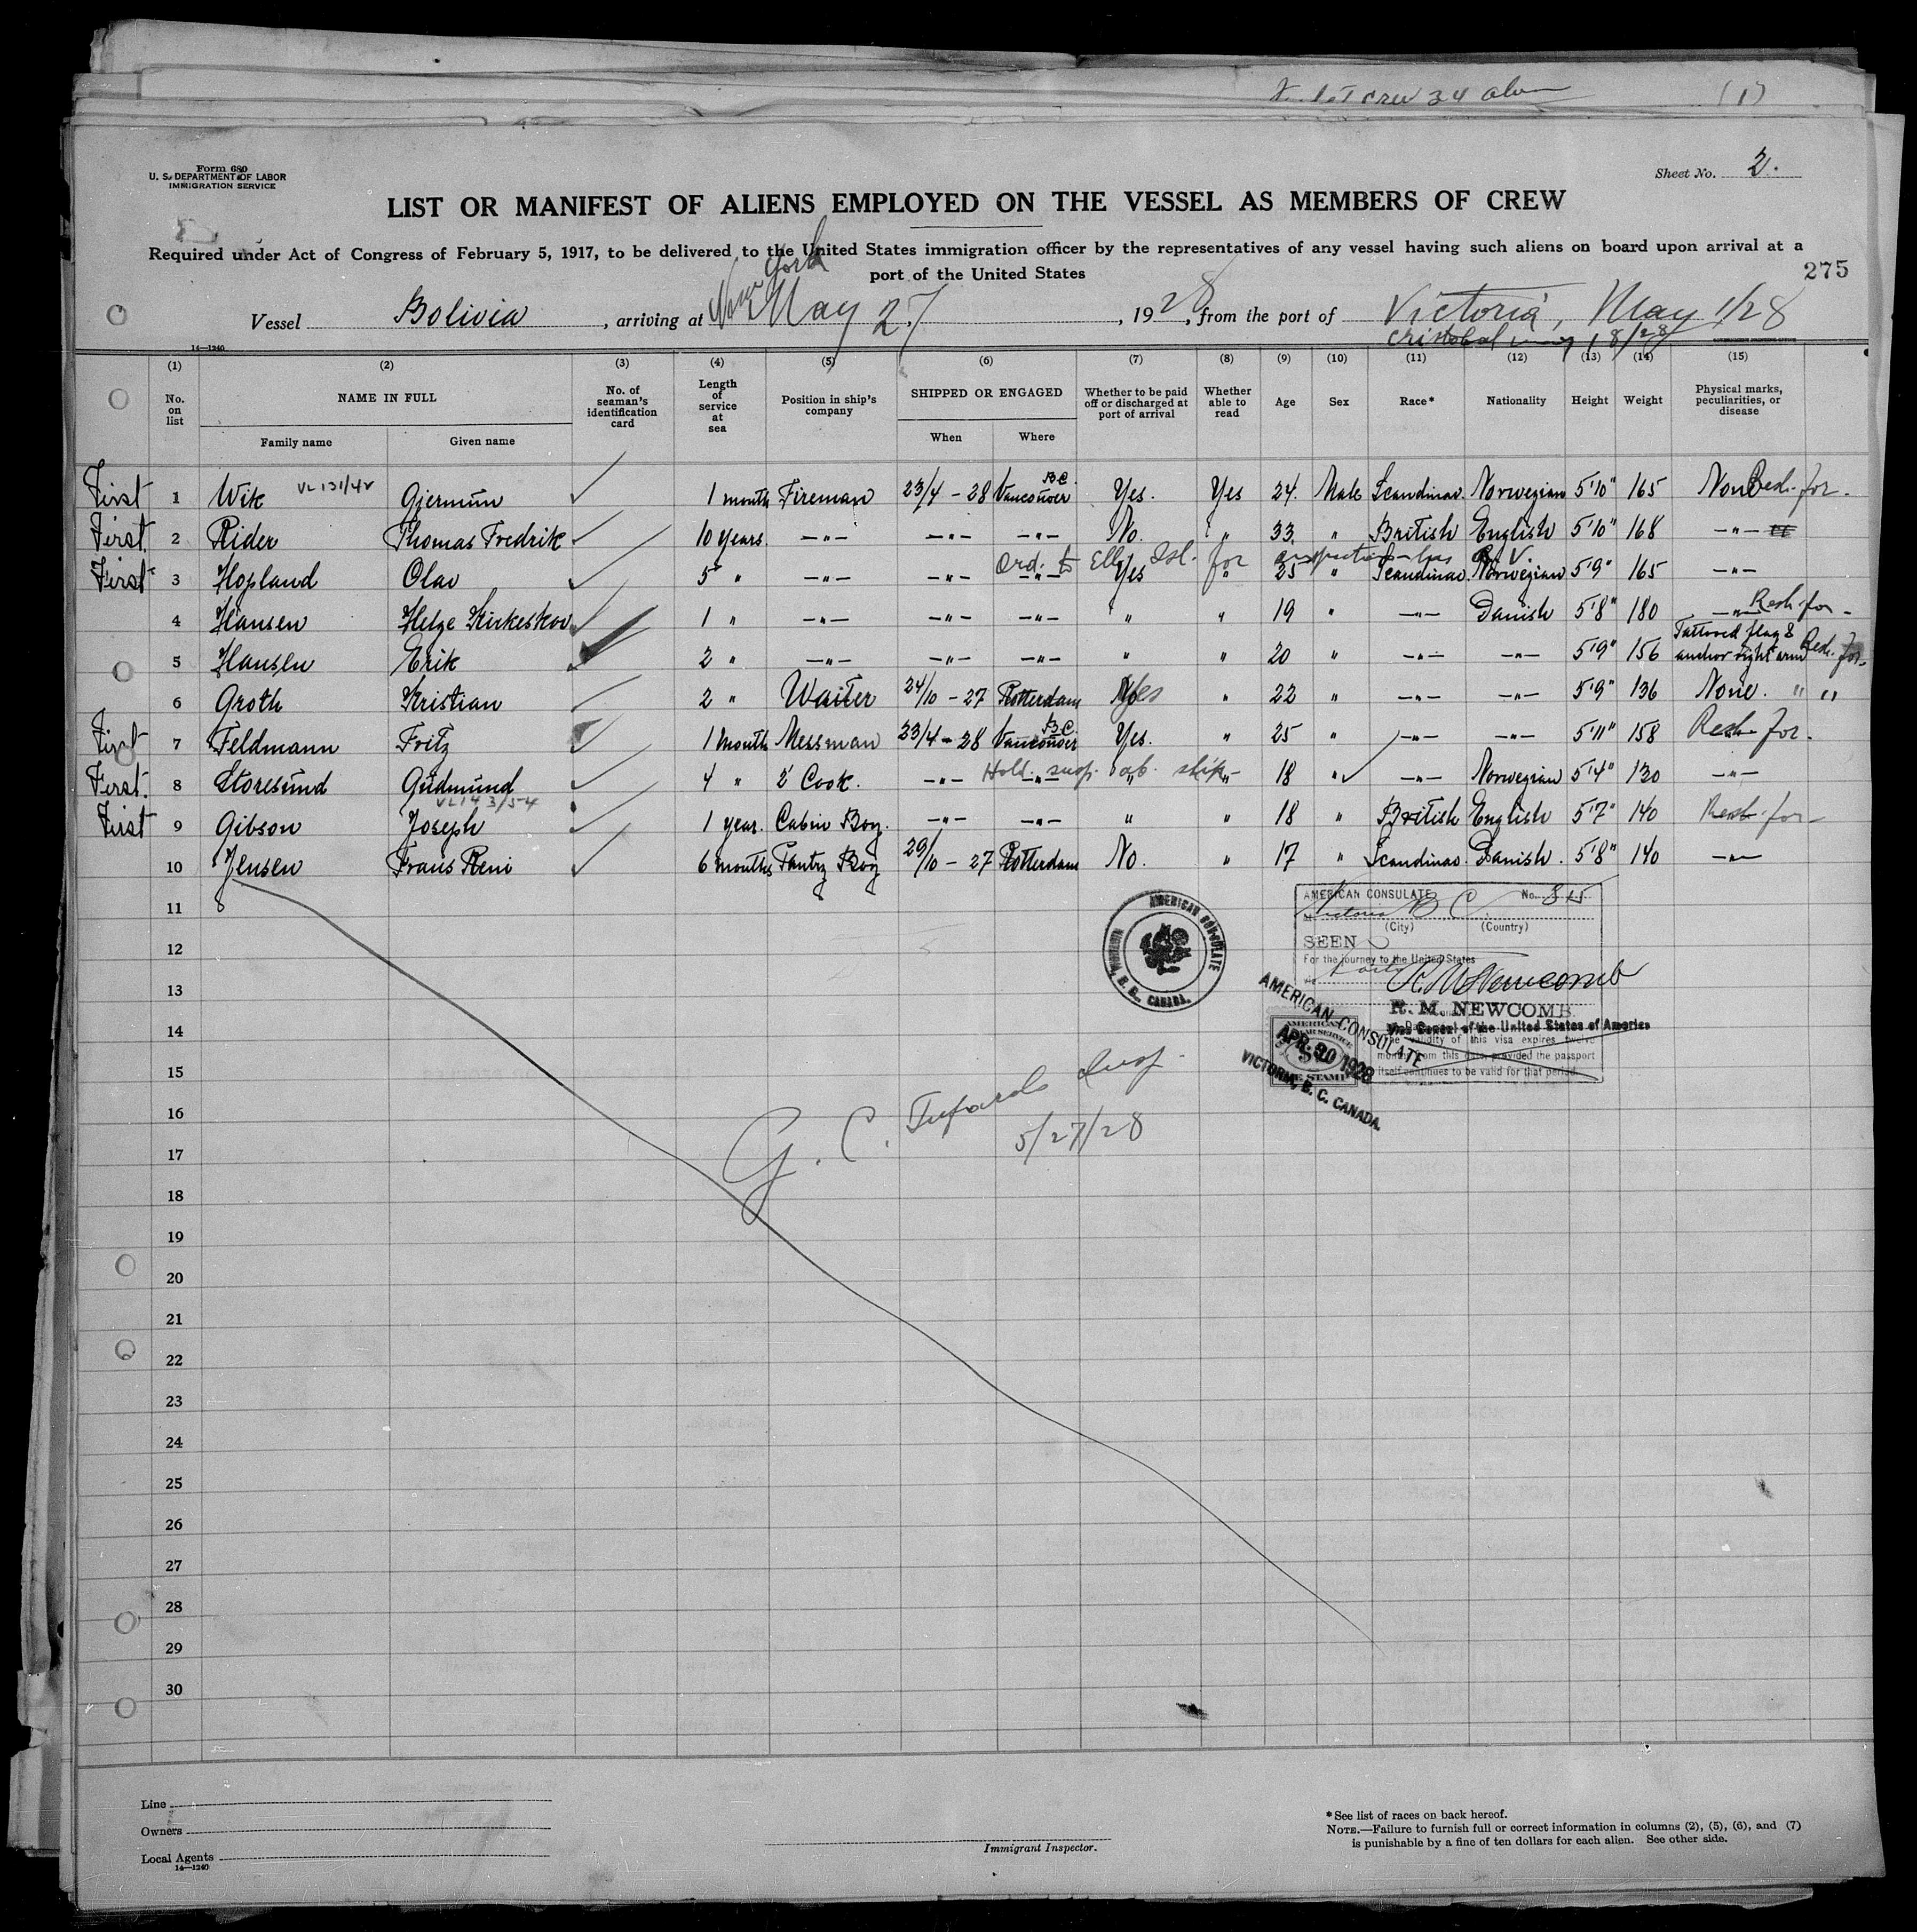 crew 34 (1)
Form 680
U. S. DEPARTMENT OF LABOR
IMMIGRATION SERVICE
Sheet No. 2.
LIST OR MANIFEST OF ALIENS EMPLOYED ON THE VESSEL AS MEMBERS OF CREW
Required under Act of Congress of February 5, 1917, to be delivered to the United States immigration officer by the representatives of any vessel having such aliens on board upon arrival at a
port of the United States
275
Vessel Bolivia, arriving at New York May 27, 1928, from the port of Victoria, May 1/28
Cristobal 18/28
14—1240
(1) (2) (3) (4) (5) (6) (7) (8) (9) (10) (11) (12) (13) (14) (15)
No. on list NAME IN FULL No. of seaman's identification card Length of service at sea Position in ship's company SHIPPED OR ENGAGED Whether to be paid off or discharged at port of arrival Whether able to read Age Sex Race* Nationality Height Weight Physical marks, peculiarities, or disease
Family name Given name When Where
First 1 Wik VL 131/42 Gjermün ✓ 1 month Fireman 23/4 - 28 Vancouver B.C. Yes. Yes 24. Male Scandinav. Norwegian 5'10" 165 None Resh. for.
First. 2 Rider Thomas Fredrik ✓ 10 years. —"— —"— —"— No. " 33. " British English 5'10" 168 —"—
Ord. to Ellis Isl. for inspection
First 3 Hopland Olav ✓ 5 " —"— —"— —"— Yes " 25 " Scandinav. Norwegian 5'9" 165 —"—
4 Hansen Helge Kirkeskov ✓ 1 " —"— —"— —"— " " 19 " —"— Danish 5'8" 180 —"— Resh. for -
5 Hansen Erik ✓ 2 " —"— —"— —"— " " 20 " —"— —"— 5'9" 156 Tattooed flag & anchor right arm Resh. for-
6 Groth Kristian ✓ 2 " Waiter 24/10 - 27 Rotterdam Yes " 22 " —"— —"— 5'9" 136 None. " "
First 7 Feldmann Fritz ✓ 1 month Messman 23/4 - 28 Vancouver B.C. Yes. " 25 " —"— —"— 5'11" 158 Resh. for.
First. 8 Storesünd Güdmünd ✓ 4 " 2' Cook. —"— —"— Hold. susp. ab. ship " " 18 " ✓ —"— Norwegian 5'4" 130 —"—
First 9 Gibson Joseph VL 143/54 ✓ 1 year. Cabin Boy. —"— —"— " " 18 " British English 5'7" 140 Resh. for -
10 Jensen Frans Reni ✓ 6 months Pantry Boy 29/10 - 27 Rotterdam No. " 17 " Scandinav. Danish. 5'8" 140 —"—
11
12
13
14
15
16
17
18
19
20
21
22
23
24
25
26
27
28
29
30
AMERICAN CONSULATE
VICTORIA, B. C., CANADA.
AMERICAN CONSULATE No. 815
Victoria B C.
(City) (Country)
SEEN
For the journey to the United States
R. M. Newcomb
R. M. NEWCOMB
Vice Consul of the United States of America
The validity of this visa expires twelve
months from this date, provided the passport
itself continues to be valid for that period.
AMERICAN CONSULATE
APR. 30 1928
VICTORIA, B. C. CANADA.
G. C. Insp.
5/27/28
Line
Owners
Local Agents
14—1240
Immigrant Inspector.
*See list of races on back hereof.
NOTE.—Failure to furnish full or correct information in columns (2), (5), (6), and (7)
is punishable by a fine of ten dollars for each alien. See other side.